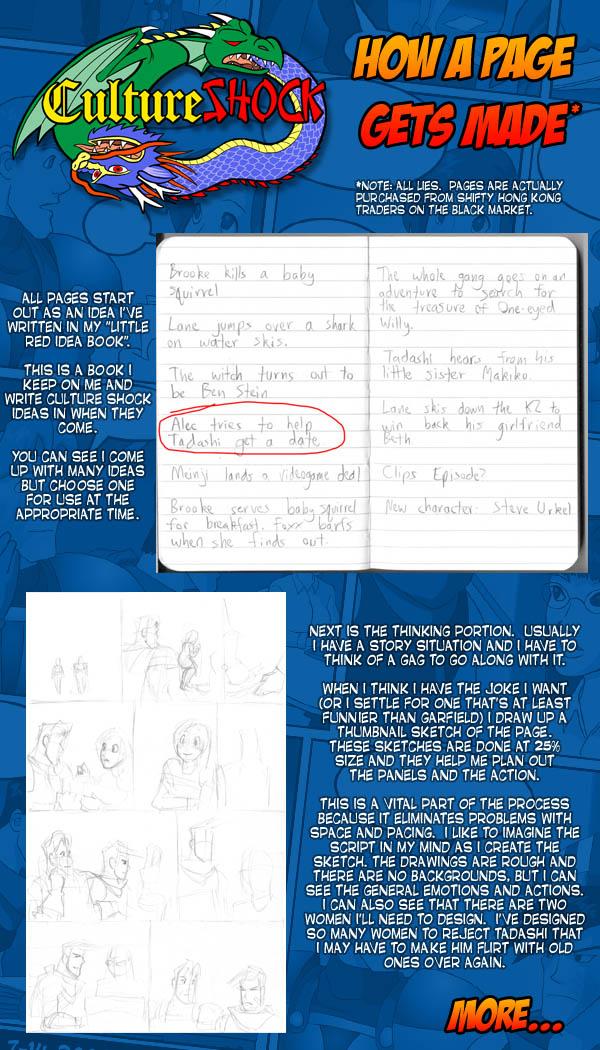 Culture SHOCK
HOW A PAGE
GETS MADE*
*NOTE: ALL LIES. PAGES ARE ACTUALLY
PURCHASED FROM SHIFTY HONG KONG
TRADERS ON THE BLACK MARKET.
ALL PAGES START
OUT AS AN IDEA I'VE
WRITTEN IN MY "LITTLE
RED IDEA BOOK".
THIS IS A BOOK I
KEEP ON ME AND
WRITE CULTURE SHOCK
IDEAS IN WHEN THEY
COME.
YOU CAN SEE I COME
UP WITH MANY IDEAS
BUT CHOOSE ONE
FOR USE AT THE
APPROPRIATE TIME.
Brooke kills a baby
squirrel
Lane jumps over a shark
on water skis.
The witch turns out to
be Ben Stein
Alec tries to help
Tadashi get a date
Meiny lands a videogame deal
Brooke serves baby squirrel
for breakfast. Foxx barfs
when she finds out.
The whole gang goes on an
adventure to search for
the treasure of One-eyed
Willy.
Tadashi hears from his
little sister Makiko.
Lane skis down the K2 to
win back his girlfriend
Beth
Clips Episode?
New character: Steve Urkel
NEXT IS THE THINKING PORTION. USUALLY
I HAVE A STORY SITUATION AND I HAVE TO
THINK OF A GAG TO GO ALONG WITH IT.
WHEN I THINK I HAVE THE JOKE I WANT
(OR I SETTLE FOR ONE THAT'S AT LEAST
FUNNIER THAN GARFIELD) I DRAW UP A
THUMBNAIL SKETCH OF THE PAGE.
THESE SKETCHES ARE DONE AT 25%
SIZE AND THEY HELP ME PLAN OUT
THE PANELS AND THE ACTION.
THIS IS A VITAL PART OF THE PROCESS
BECAUSE IT ELIMINATES PROBLEMS WITH
SPACE AND PACING. I LIKE TO IMAGINE THE
SCRIPT IN MY MIND AS I CREATE THE
SKETCH. THE DRAWINGS ARE ROUGH AND
THERE ARE NO BACKGROUNDS, BUT I CAN
SEE THE GENERAL EMOTIONS AND ACTIONS.
I CAN ALSO SEE THAT THERE ARE TWO
WOMEN I'LL NEED TO DESIGN. I'VE DESIGNED
SO MANY WOMEN TO REJECT TADASHI THAT
I MAY HAVE TO MAKE HIM FLIRT WITH OLD
ONES OVER AGAIN.
MORE...